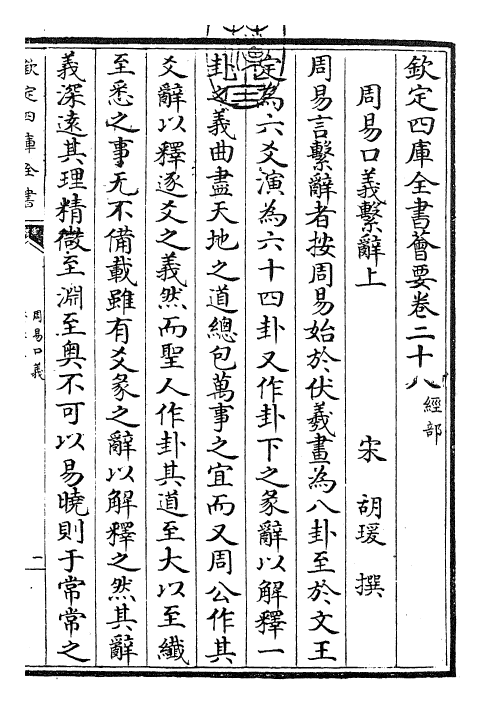 欽定四庫全書薈要卷二十八 經部
周易口義繫辭上 宋 胡瑗 撰
周易言繫辭者按周易始於伏羲畫為八卦至於文王
定為六爻演為六十四卦又作卦下之彖辭以解釋一
卦之義曲盡天地之道總包萬事之宜而又周公作其
爻辭以釋逐爻之義然而聖人作卦其道至大以至纖
至悉之事无不備載雖有爻彖之辭以解釋之然其辭
義深遠其理精微至淵至奥不可以易曉則于常常之
欽定四庫全書
周易口義